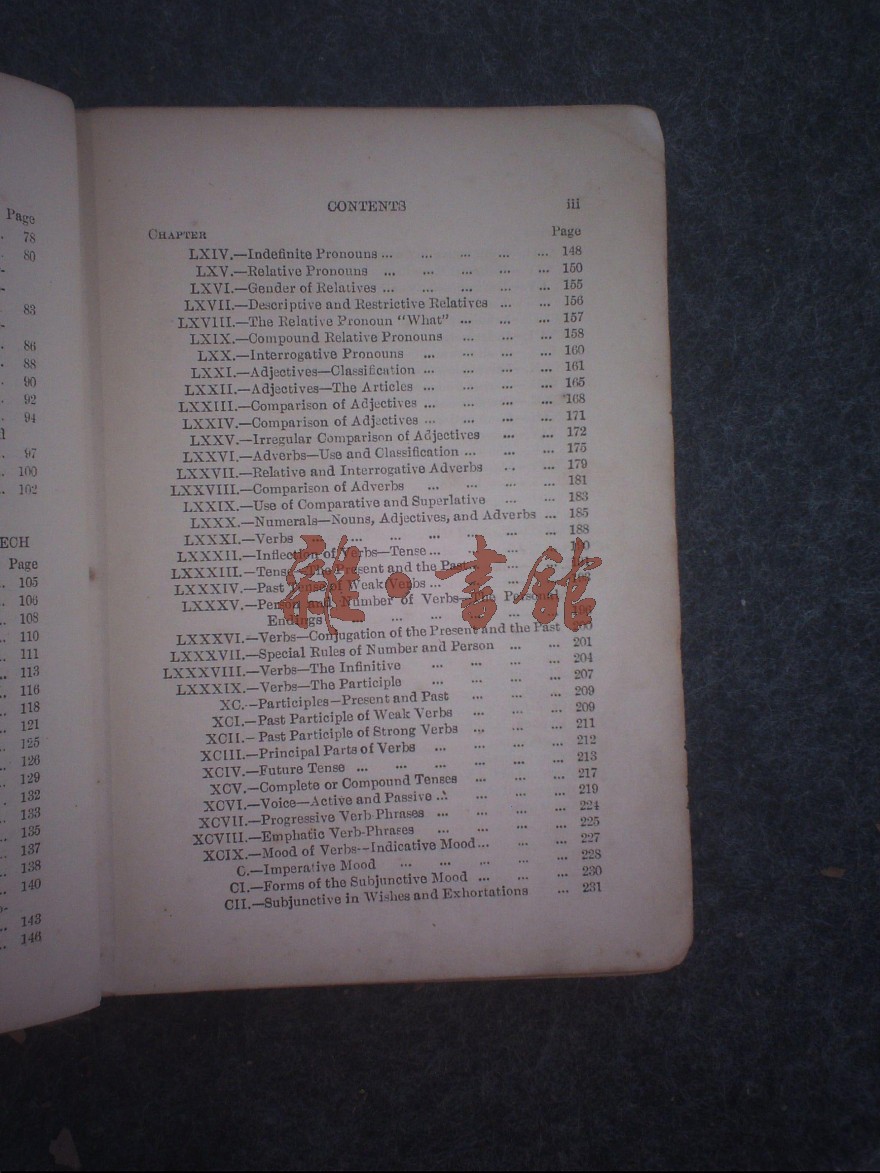 Page
78
80
83
86
88
90
92
94
97
100
102
ECH
Page
105
106
108
110
111
113
116
118
121
125
126
129
132
133
135
137
138
140
143
146
CONTENTS iii
CHAPTER Page
LXIV.—Indefinite Pronouns ... ... ... ... ... 148
LXV.—Relative Pronouns ... ... ... ... ... 150
LXVI.—Gender of Relatives ... ... ... ... ... 155
LXVII.—Descriptive and Restrictive Relatives ... ... 156
LXVIII.—The Relative Pronoun "What" ... ... ... 157
LXIX.—Compound Relative Pronouns ... ... ... 158
LXX.—Interrogative Pronouns ... ... ... ... 160
LXXI.—Adjectives—Classification ... ... ... ... 161
LXXII.—Adjectives—The Articles ... ... ... ... 165
LXXIII.—Comparison of Adjectives ... ... ... ... 168
LXXIV.—Comparison of Adjectives ... ... ... ... 171
LXXV.—Irregular Comparison of Adjectives ... ... 172
LXXVI.—Adverbs—Use and Classification ... ... ... 175
LXXVII.—Relative and Interrogative Adverbs ... ... 179
LXXVIII.—Comparison of Adverbs ... ... ... ... 181
LXXIX.—Use of Comparative and Superlative ... ... 183
LXXX.—Numerals—Nouns, Adjectives, and Adverbs ... 185
LXXXI.—Verbs ... ... ... ... ... ... ... 188
LXXXII.—Inflection of Verbs—Tense ...
LXXXIII.—Tense—The Present and the Past
LXXXIV.—Past Tense of Weak Verbs ...
LXXXV.—Person and Number of Verbs—The Personal
Endings ... ... ... ... ... ...
LXXXVI.—Verbs—Conjugation of the Present and the Past 200
LXXXVII.—Special Rules of Number and Person ... ... 201
LXXXVIII.—Verbs—The Infinitive ... ... ... ... 204
LXXXIX.—Verbs—The Participle ... ... ... ... 207
XC.—Participles—Present and Past ... ... ... 209
XCI.—Past Participle of Weak Verbs ... ... ... 209
XCII.—Past Participle of Strong Verbs ... ... ... 211
XCIII.—Principal Parts of Verbs ... ... ... ... 212
XCIV.—Future Tense ... ... ... ... ... ... 213
XCV.—Complete or Compound Tenses ... ... ... 217
XCVI.—Voice—Active and Passive ... ... ... ... 219
XCVII.—Progressive Verb-Phrases ... ... ... ... 224
XCVIII.—Emphatic Verb-Phrases ... ... ... ... 225
XCIX.—Mood of Verbs—Indicative Mood ... ... ... 227
C.—Imperative Mood ... ... ... ... ... 228
CI.—Forms of the Subjunctive Mood ... ... ... 230
CII.—Subjunctive in Wishes and Exhortations ... 231
雜·書館